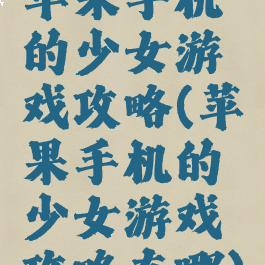 苹果手机
的少女游
戏攻略(苹
果手机的
少女游戏
攻略在哪)